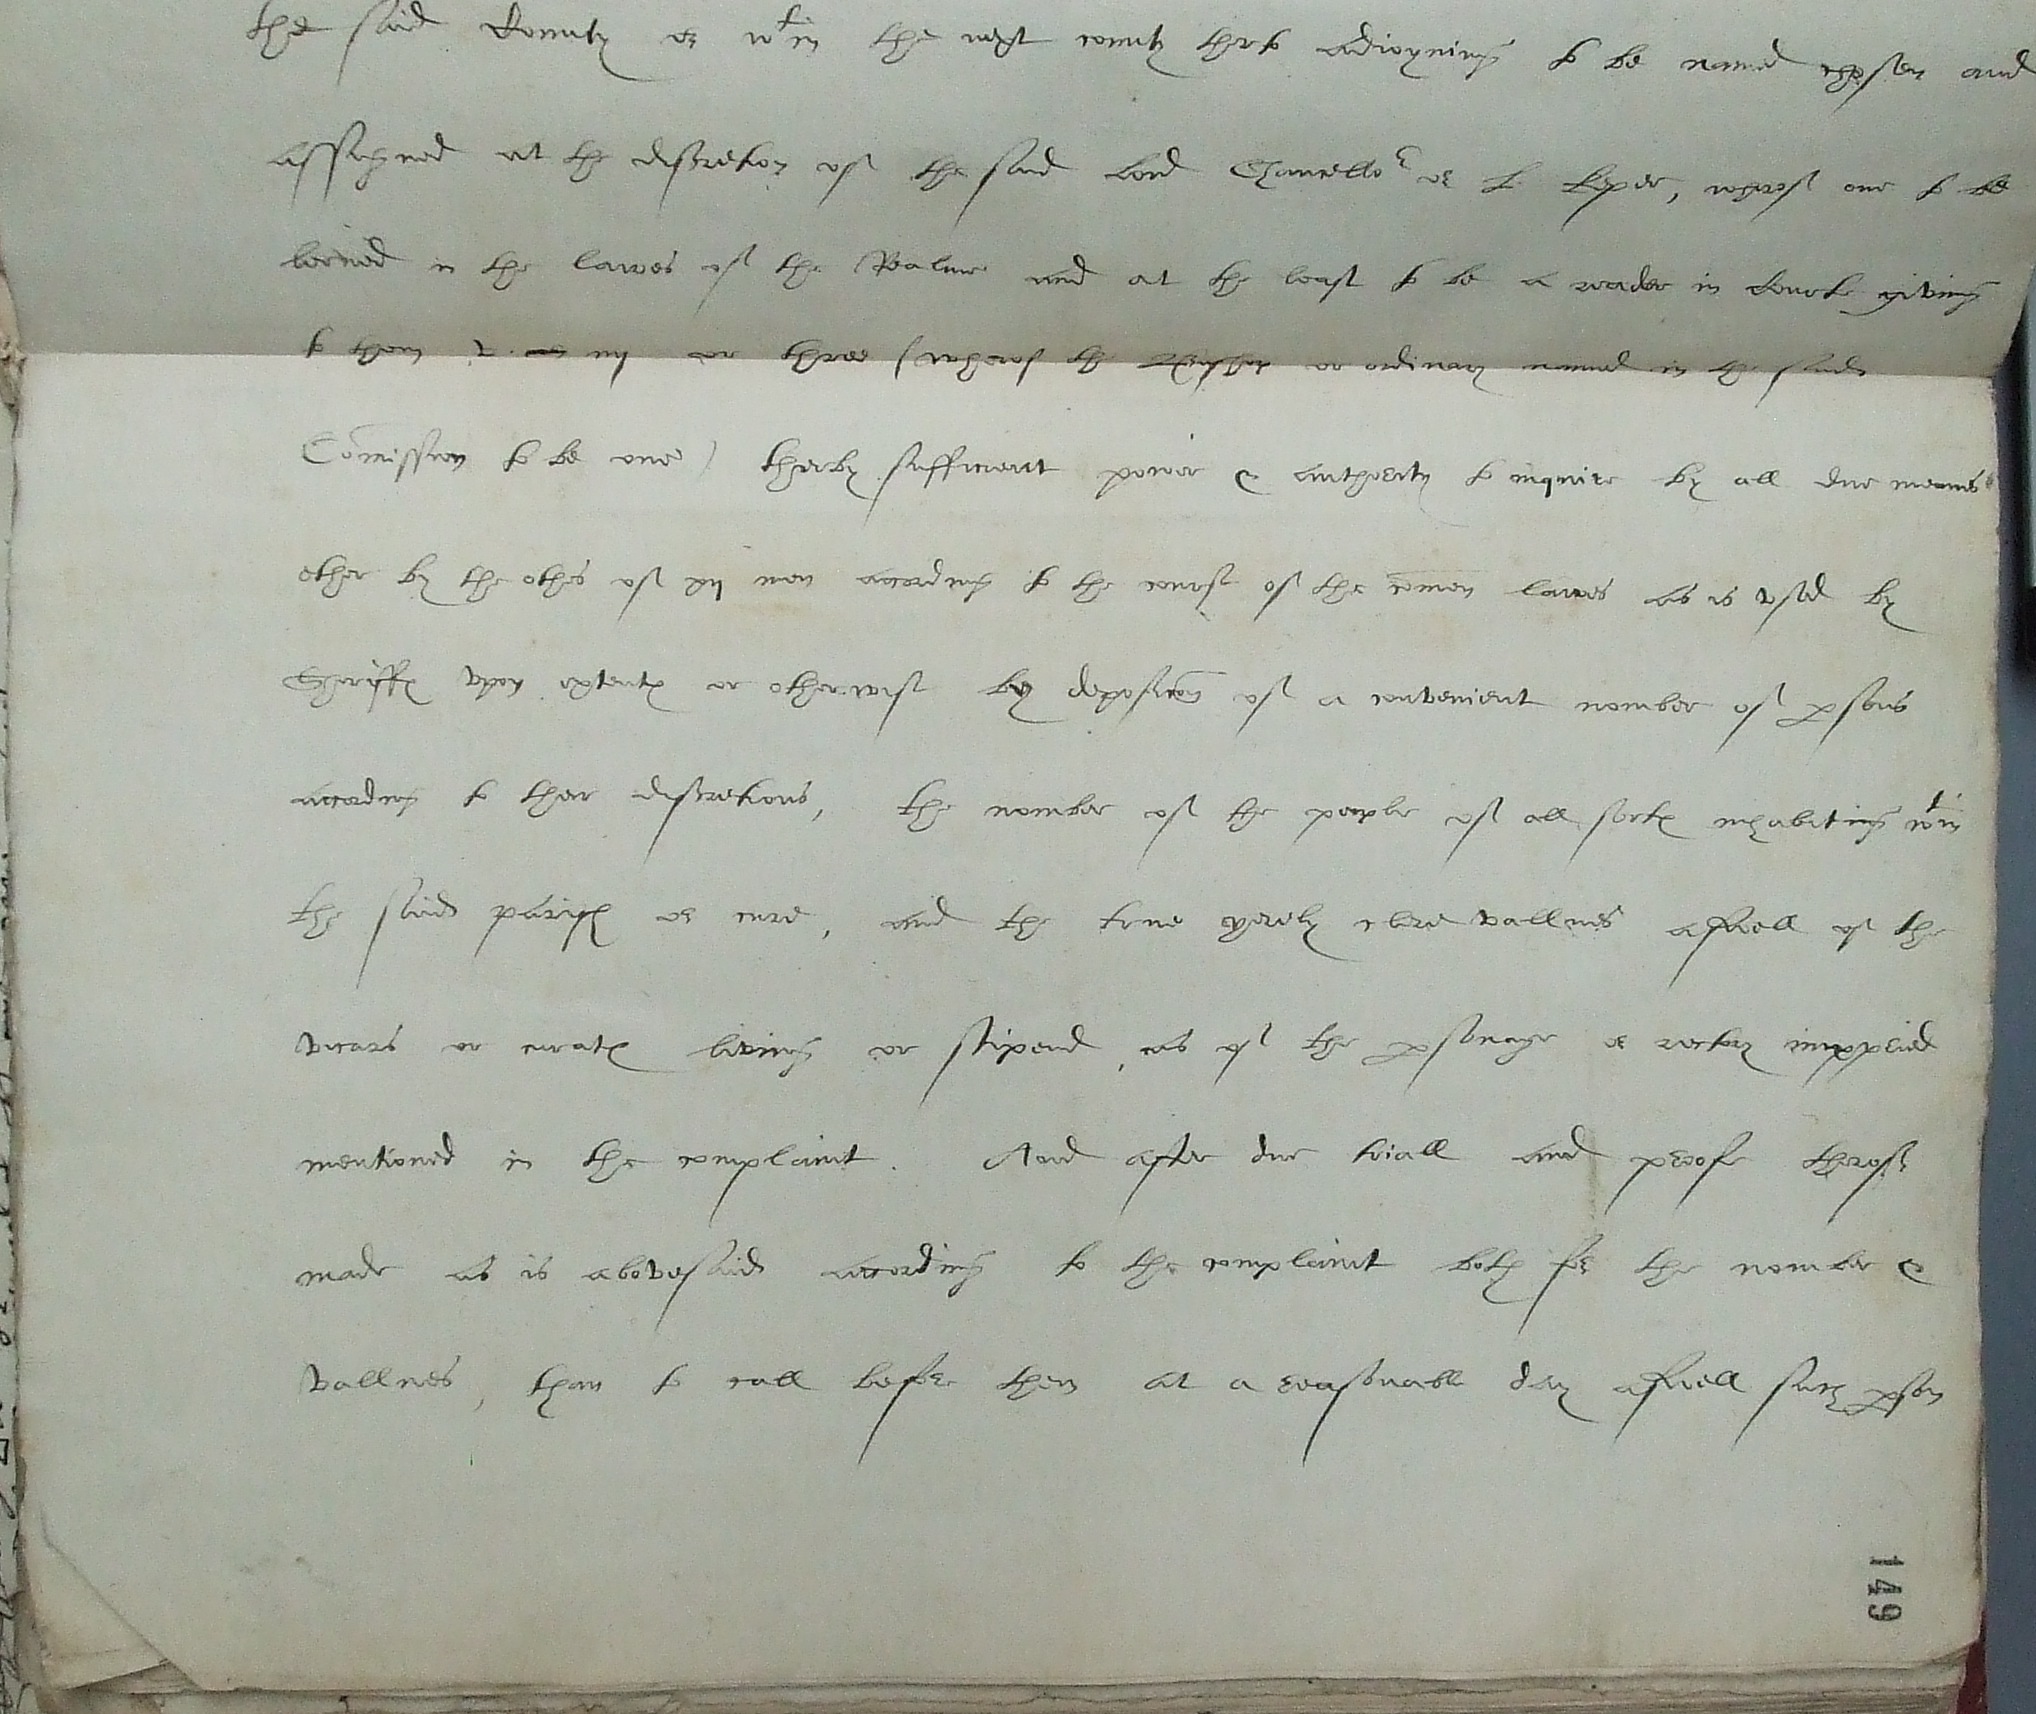 the said County or wtin the next county therto adioyning to be named chosen and
assigned at the discretion of the said Lord Chancellor or L. keper, wherof one to be
lerned in the lawes of the Realme and at the least to be a reader in Courte giving
to them iiij or three (wherof the Bisshop or ordinary named in the said
Comission to be one) therby sufficient power & authority to inquire by all due meanes
ether by the othes of xij men according to the course of the comon lawes as is vsed by
Sheriffes vpon extentes or otherwise by deposicon of a convenient nomber of psons
according to their discretions, the nomber of the people of all sortes inhabiting wtin
the said parish or cure, and the true yerely clere vallues aswell of the
vicars or curates living or stipend, as of the psonage or rectory impropried
mentioned in the complaint. And after due triall and proofe therof
made as is abovesaid according to the complaint both for the nomber &
vallues, than to call before them at a reasonable day aswell such pson
149